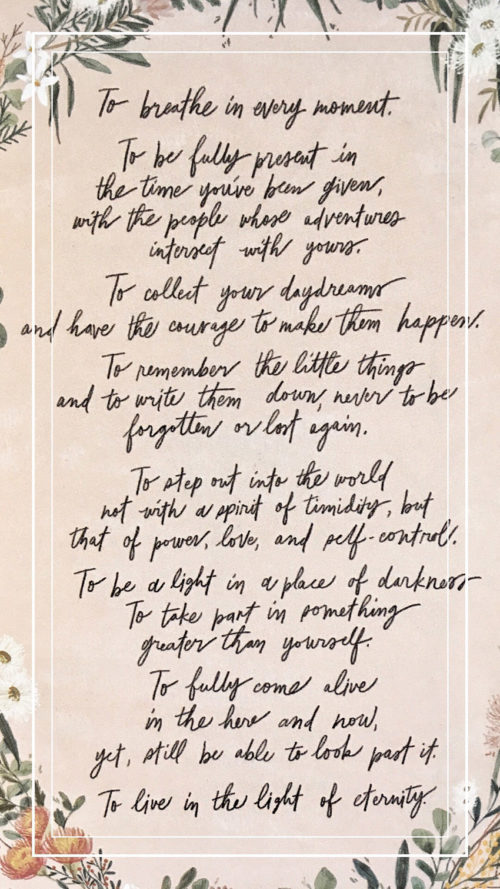 To breathe in every moment.
To be fully present in
the time you've been given,
with the people whose adventures
intersect with yours.
To collect your daydreams
and have the courage to make them happen.
To remember the little things
and to write them down, never to be
forgotten or lost again.
To step out into the world
not with a spirit of timidity, but
that of power, love, and self-control.
To be a light in a place of darkness
To take part in something
greater than yourself.
To fully come alive
in the here and now,
yet, still be able to look past it.
To live in the light of eternity.